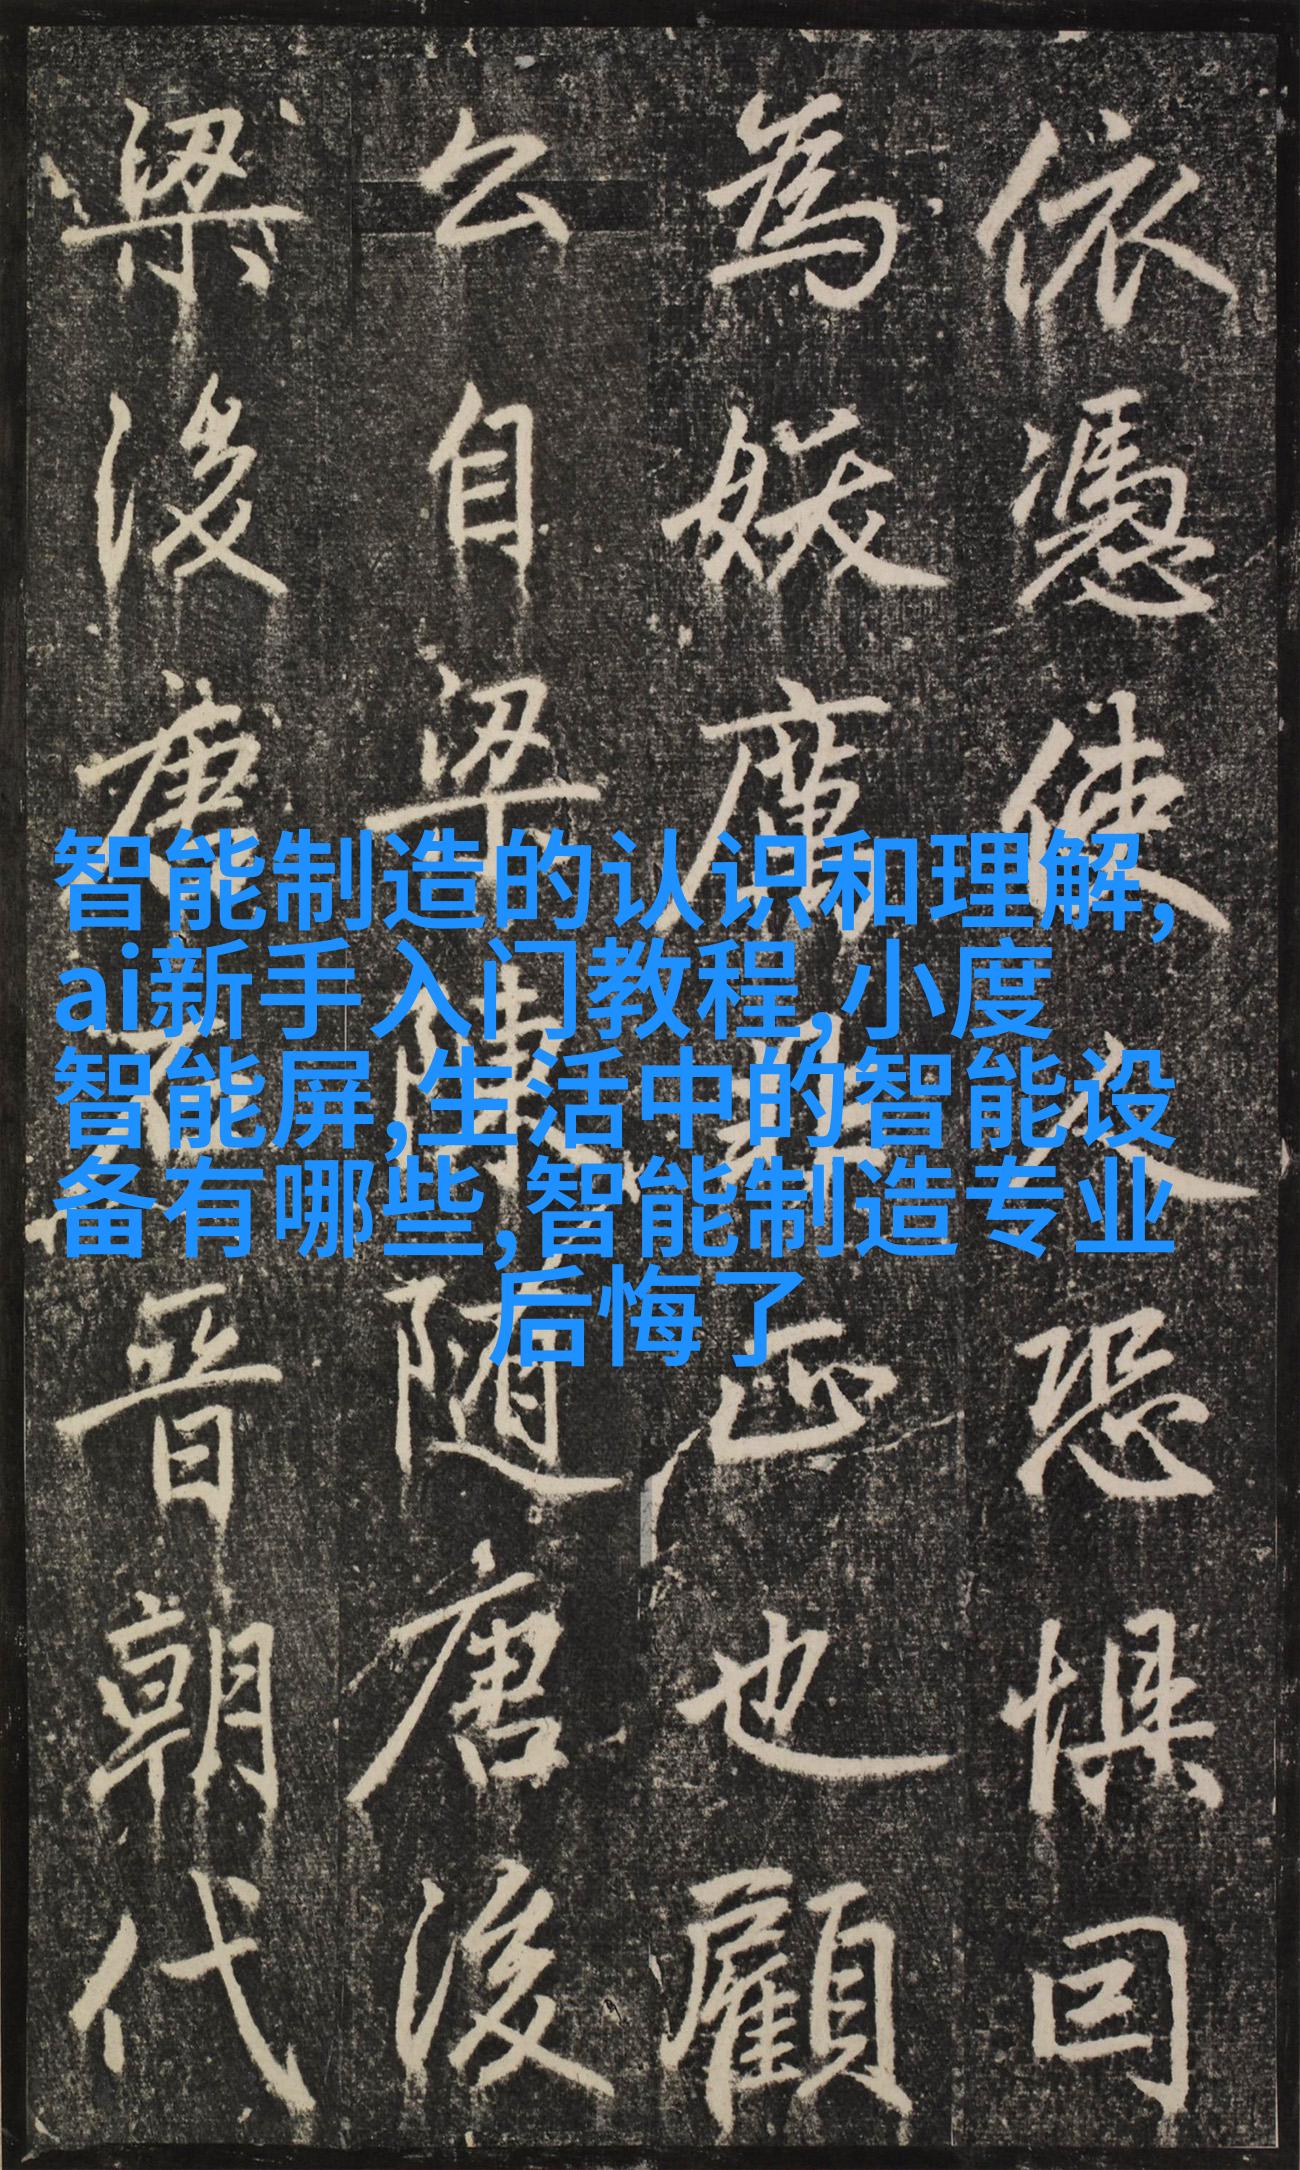 依憑使人恐懼因
為妖厲具正也顧
公自梁陳隨唐後
梁後唐石晉朝代
智能制造的认识和理解,
ai新手入门教程,小度
智能屏,生活中的智能设
备有哪些,智能制造专业
后悔了